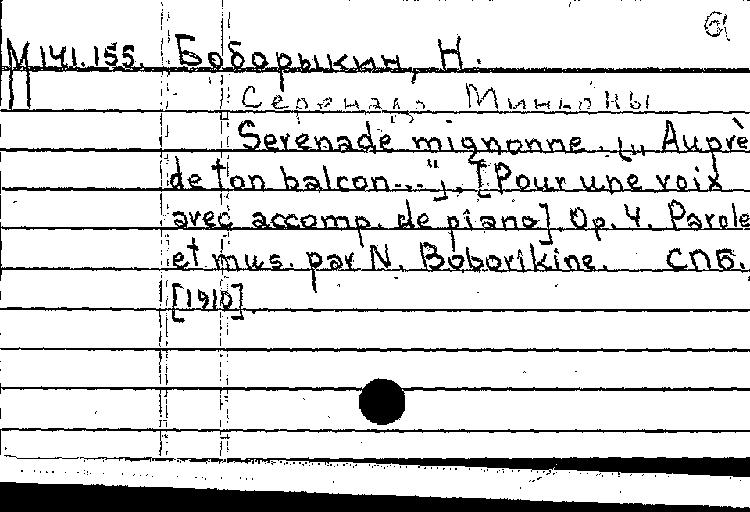 М 141.155. Боборыкин, Н.
Серенада Миньоны
Serenade mignonne. ["Auprè
de ton balcon..."]. [Pour une voix
avec accomp. de piano]. Op. 4. Parole
et mus. par N. Boborikine. СПБ.,
[1910].